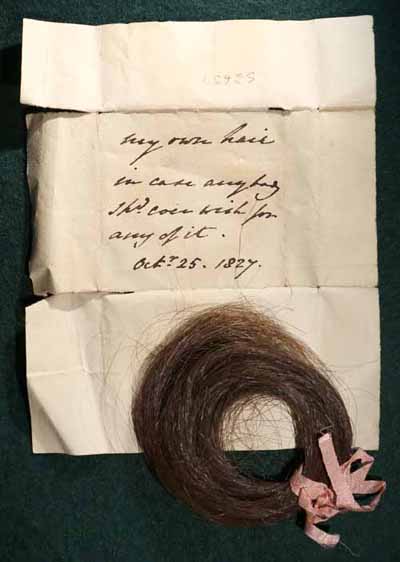 52625
my own hair
in case any body
Shd. ever wish for
any of it.
Octr. 25. 1827.